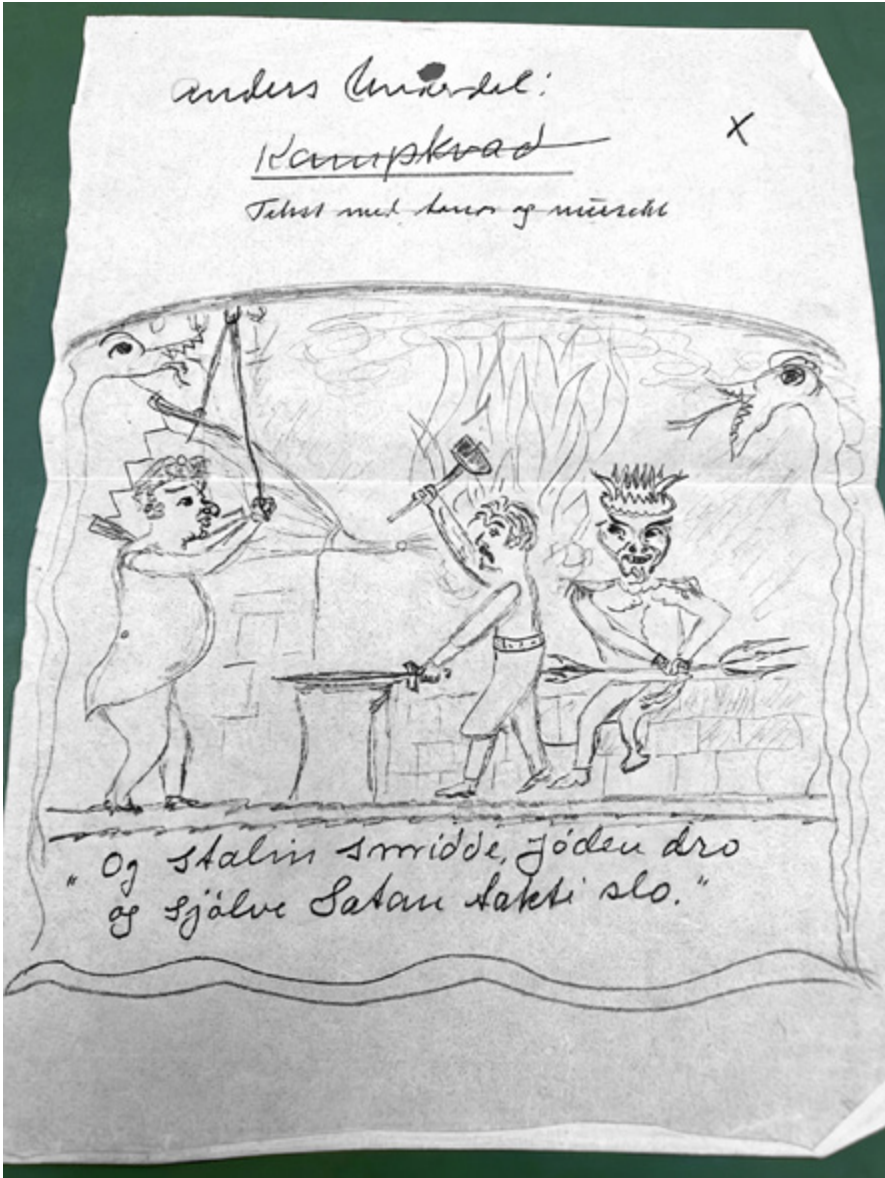 Anders Underdal:
Kampkvad
Tekst med tonar og
"Og Stalin smidde, jöden dro
og sjölve Satan takti slo."